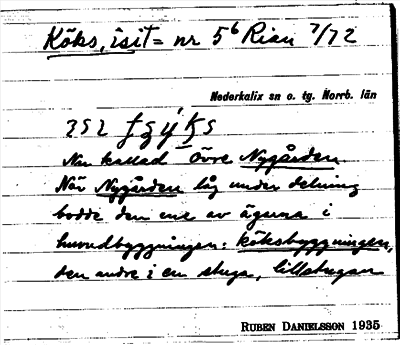 Köks, isit = nr 5⁶ Rian 7/72
Nederkalix sn o. tg. Norrb. län
Nu kallad Övre Nygården
När Nygården låg under delning
bodde den ene av ägarna i
huvudbyggningen: köksbyggningen,
den andre i en stuga, lillstugan
RUBEN DANIELSSON 1935